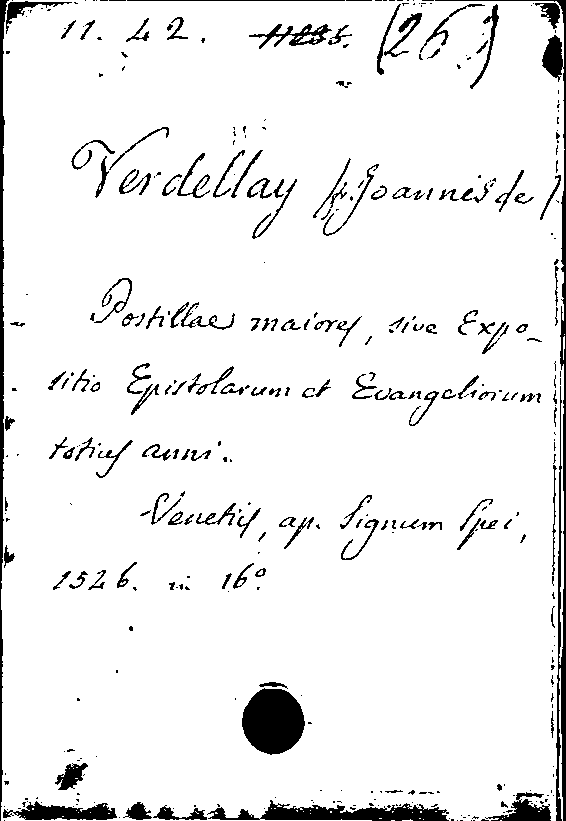 11. 42. 11235. (26)
Verdellay (f. Joannis de)
Postillae maiores, sive Expo-
sitio Epistolarum et Evangeliorum
totius anni.
Venetiis, ap. Signum Spei,
1526. in 16º